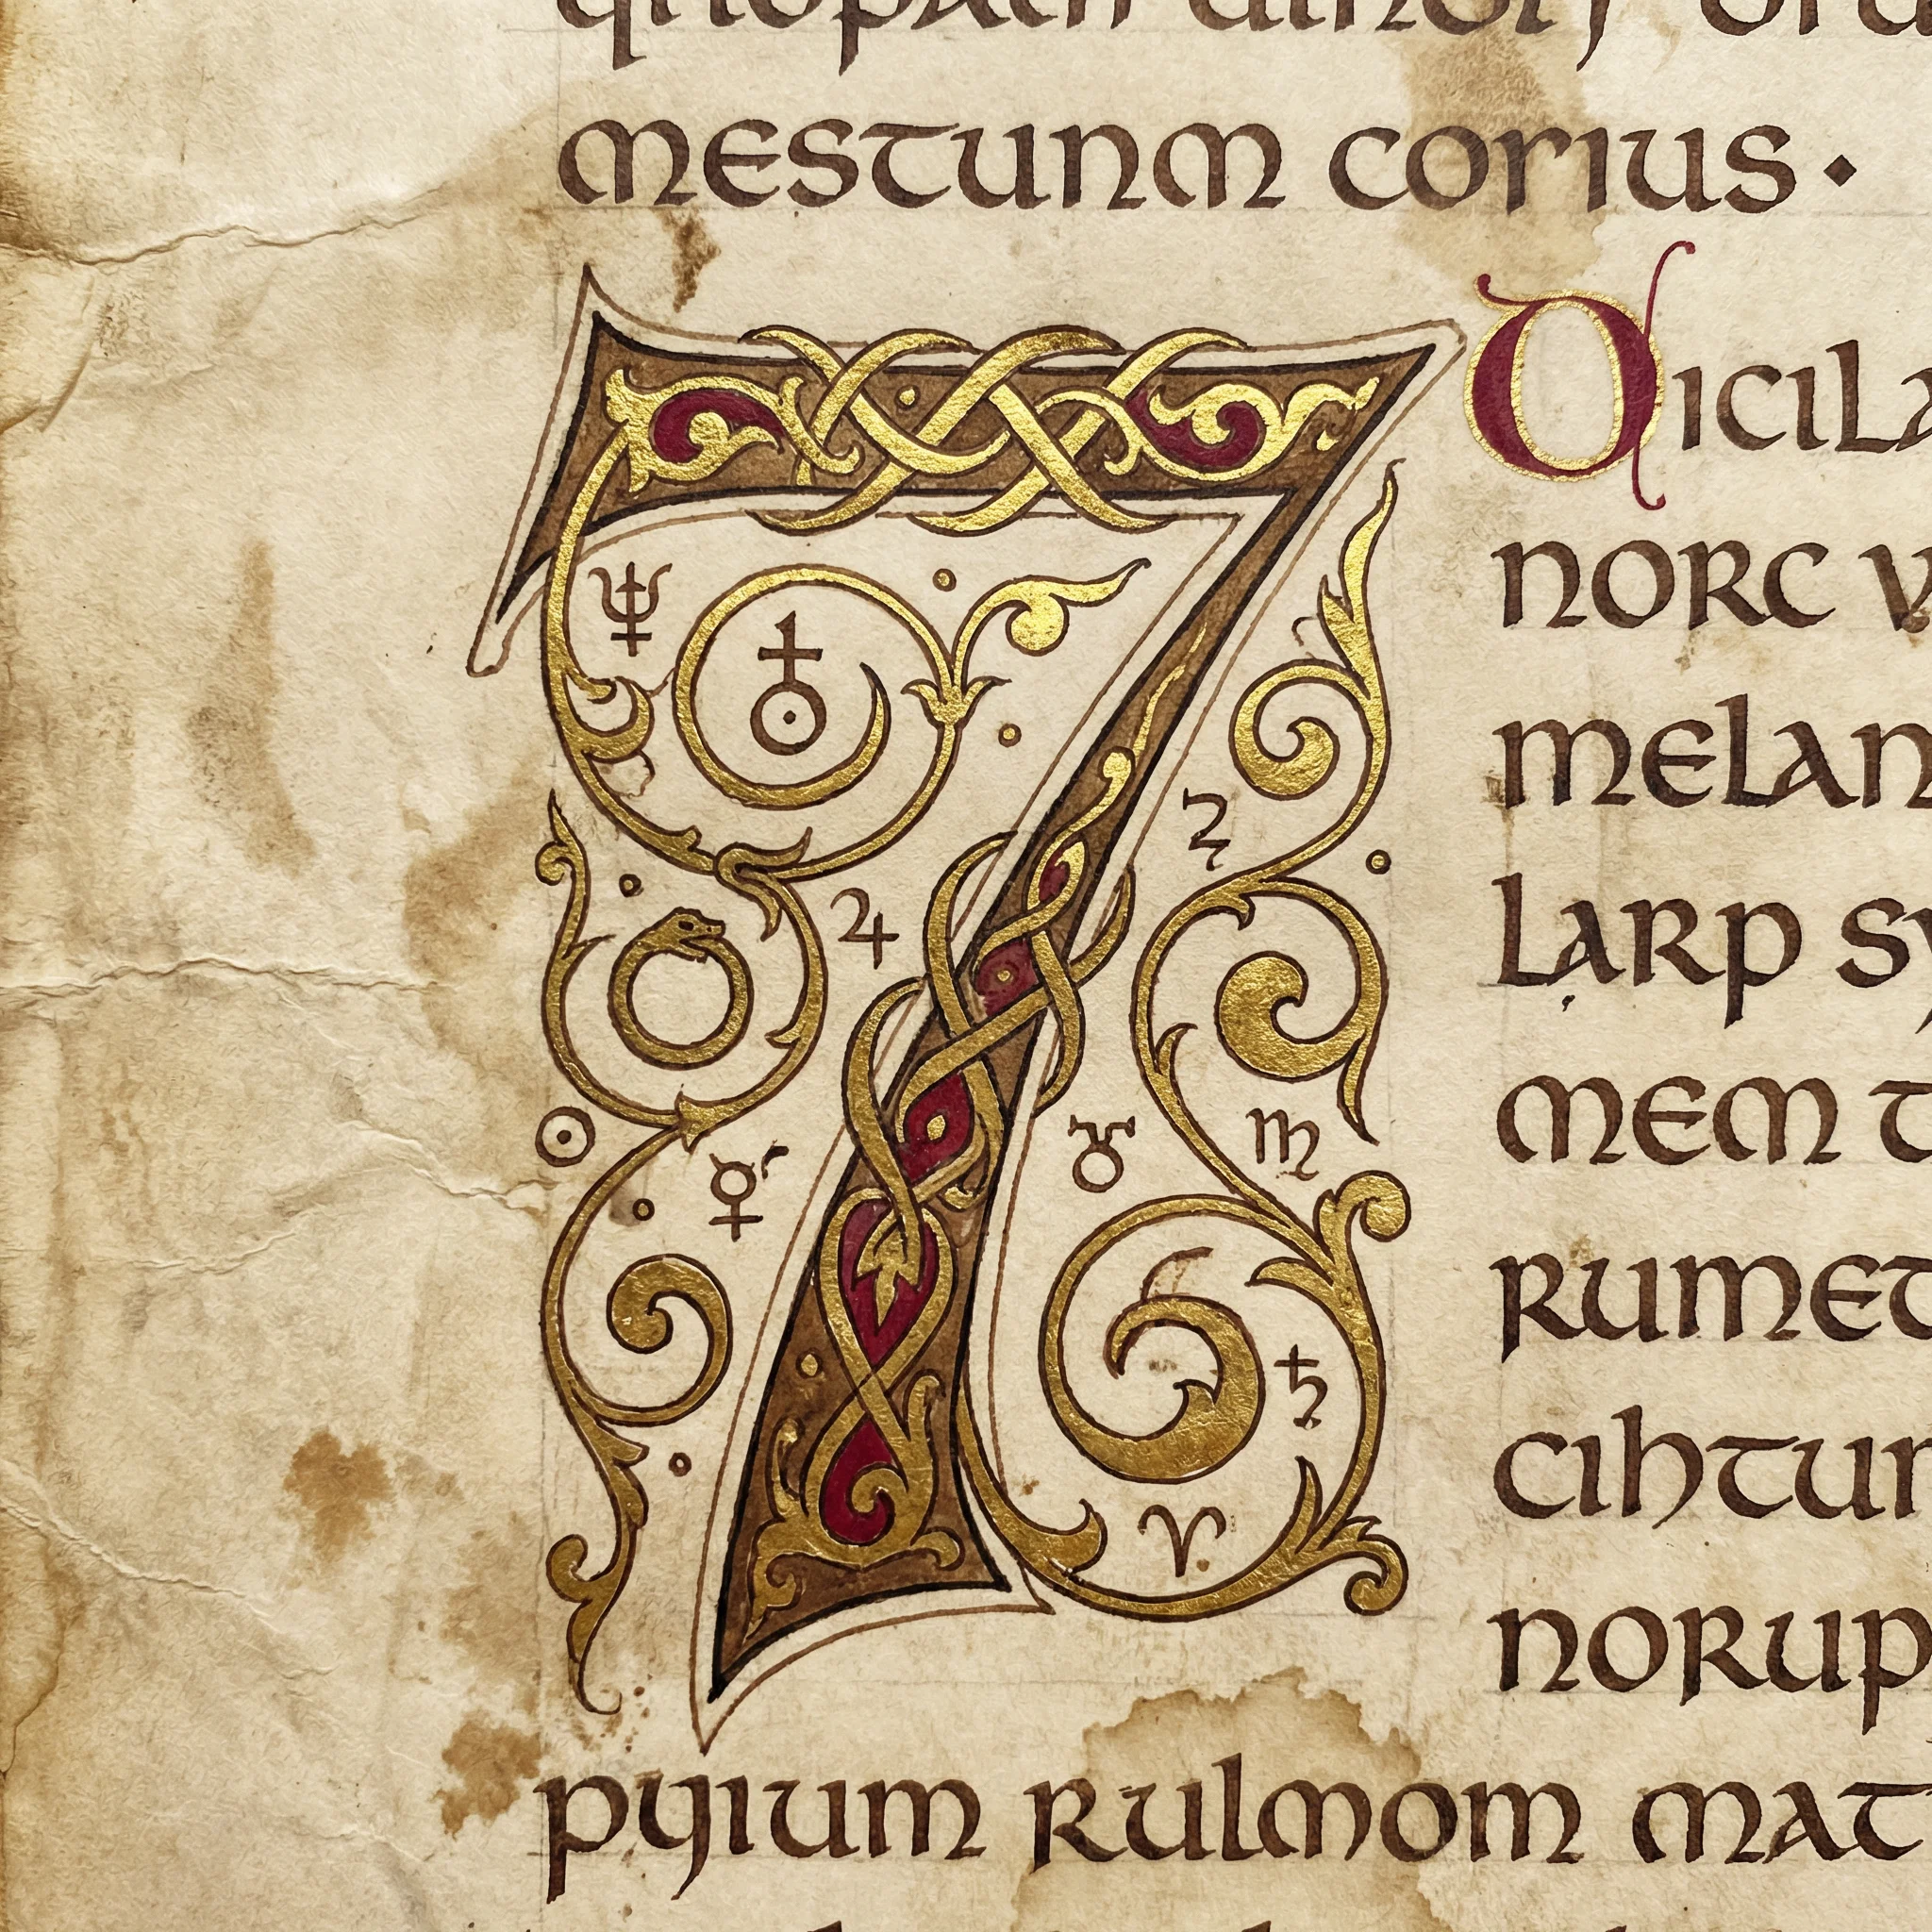 mestunm corius·
7 Dicila
norc v
melan
larp sy
mem t
rumet
cihtur
norup
pyium rulmom mat